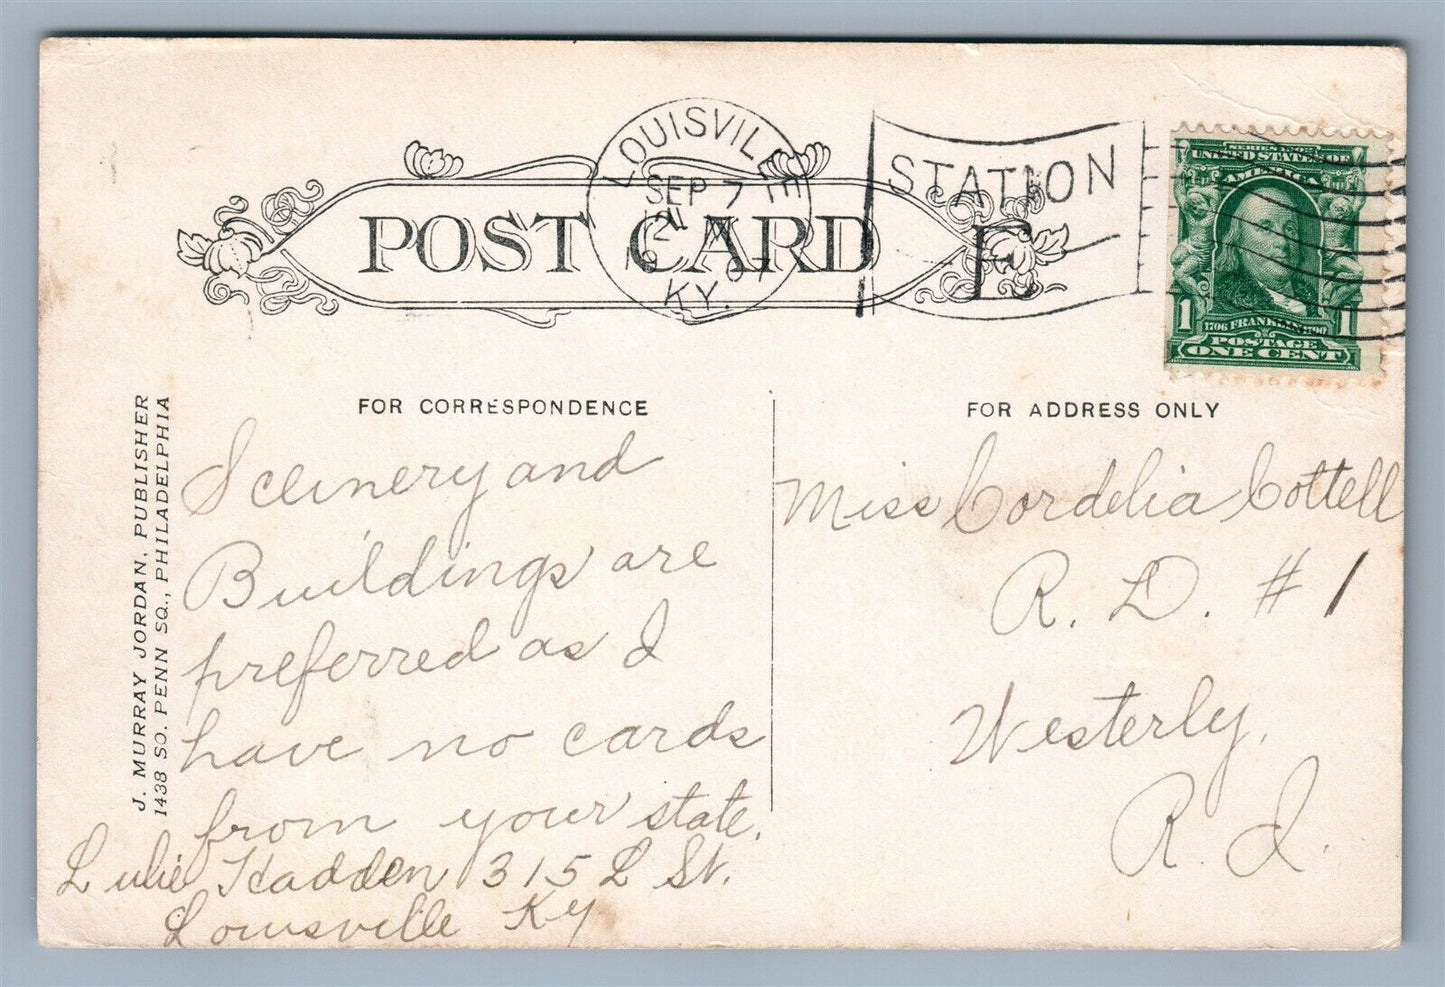 LOUISVILLE
SEP 7
KY.
STATION
E
POST CARD
SERIES 1902
UNITED STATES OF
AMERICA
1706 FRANKLIN 1790
1 1
POSTAGE
ONE CENT
J. MURRAY JORDAN, PUBLISHER
1438 SO. PENN SQ., PHILADELPHIA
FOR CORRESPONDENCE
Sceinery and
Buildings are
preferred as I
have no cards
from your state.
Lulie Hadden 315 L St.
Louisville Ky
FOR ADDRESS ONLY
Miss Cordelia Cottell
R. D. # 1
Westerly,
R. I.